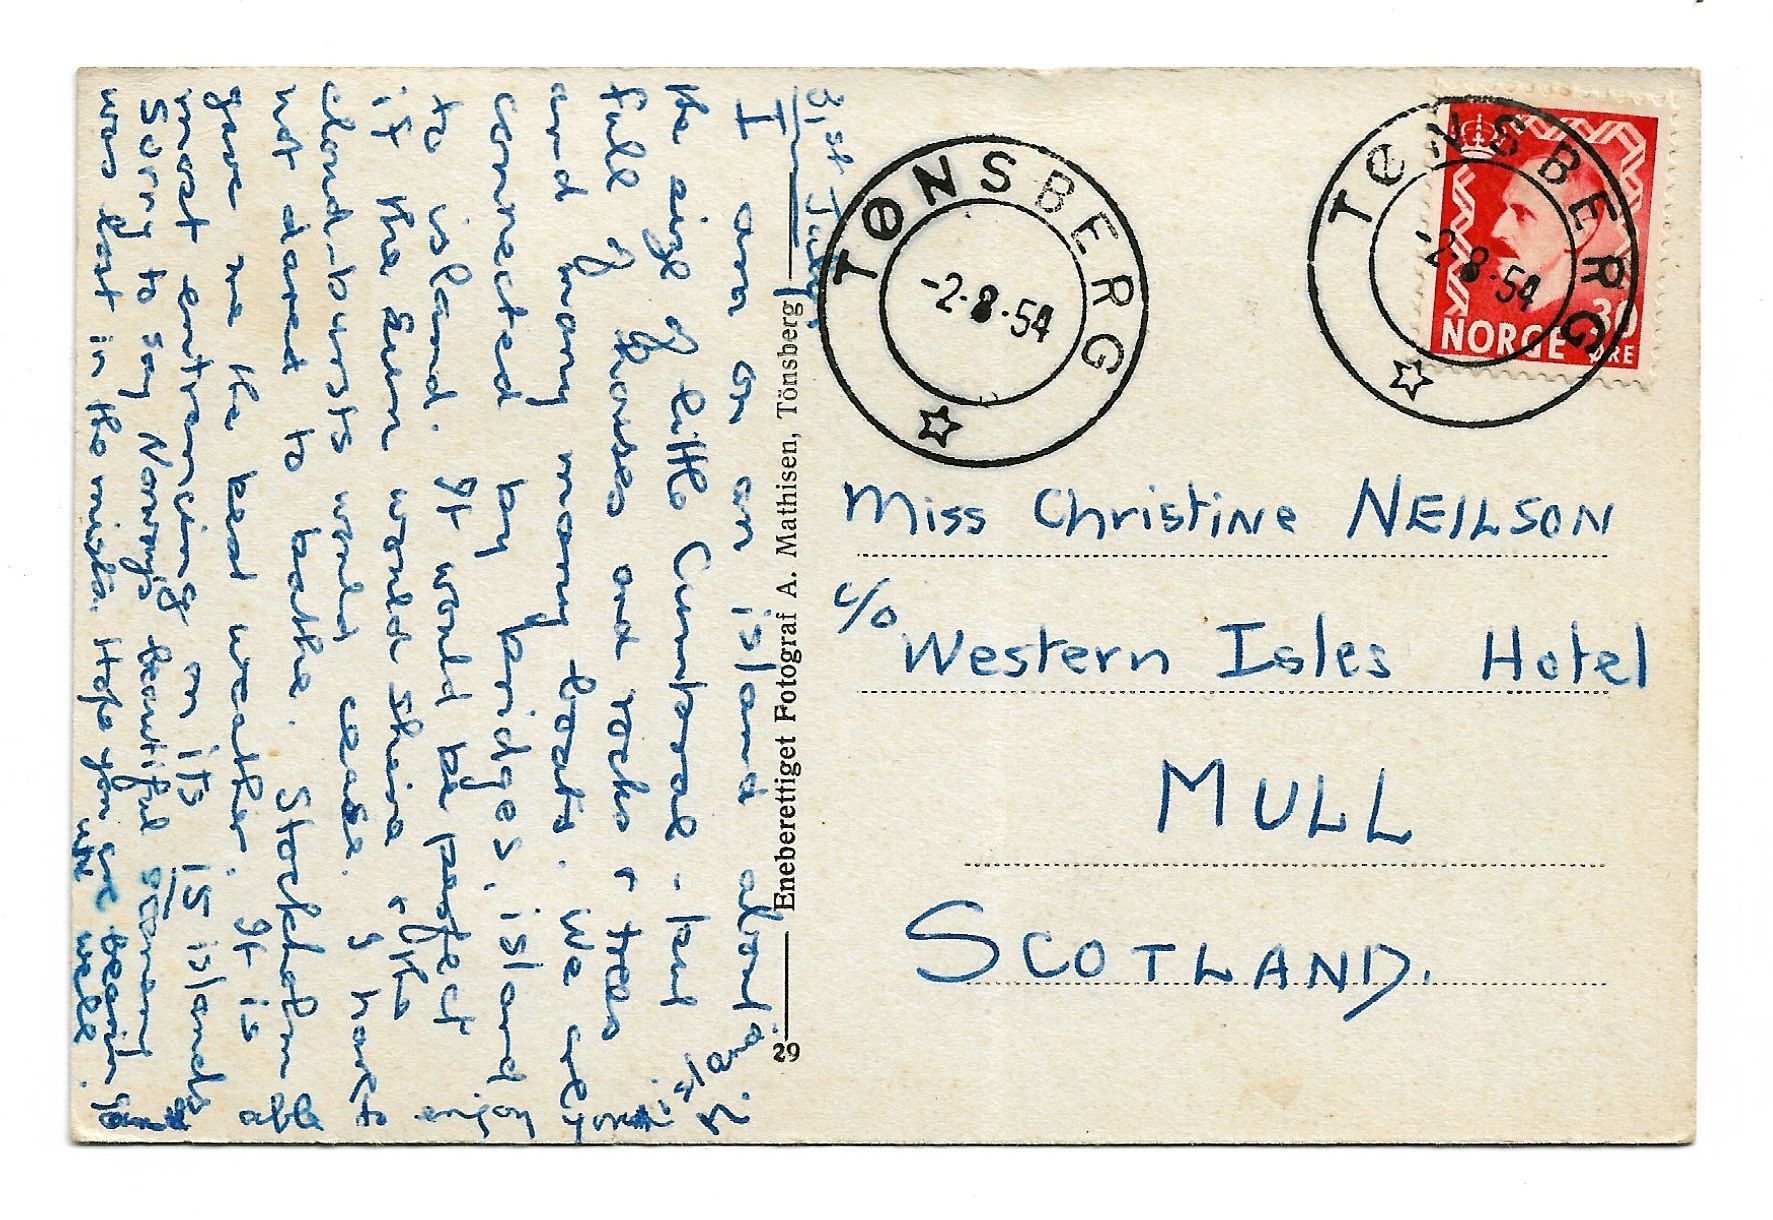 31st July
I am on an island about
the size of Little Cumbrae - but it is
full of houses and rocks & trees
and many many boats. We are
connected by bridges, island
to island. It would be perfect
if the sun would shine & the
cloud-bursts would cease. I have
not dared to bathe. Stockholm
gave me the best weather. It is
most entrancing on its 15 islands
Sorry to say Norway's beautiful scenery
was lost in the mists. Hope you are
well.
Eneberettiget Fotograf A. Mathisen, Tönsberg
29
TØNSBERG
-2-8-54
TØNSBERG
-2-8-54
NORGE
30
ØRE
Miss Christine NEILSON
c/o
Western Isles Hotel
MULL
SCOTLAND.